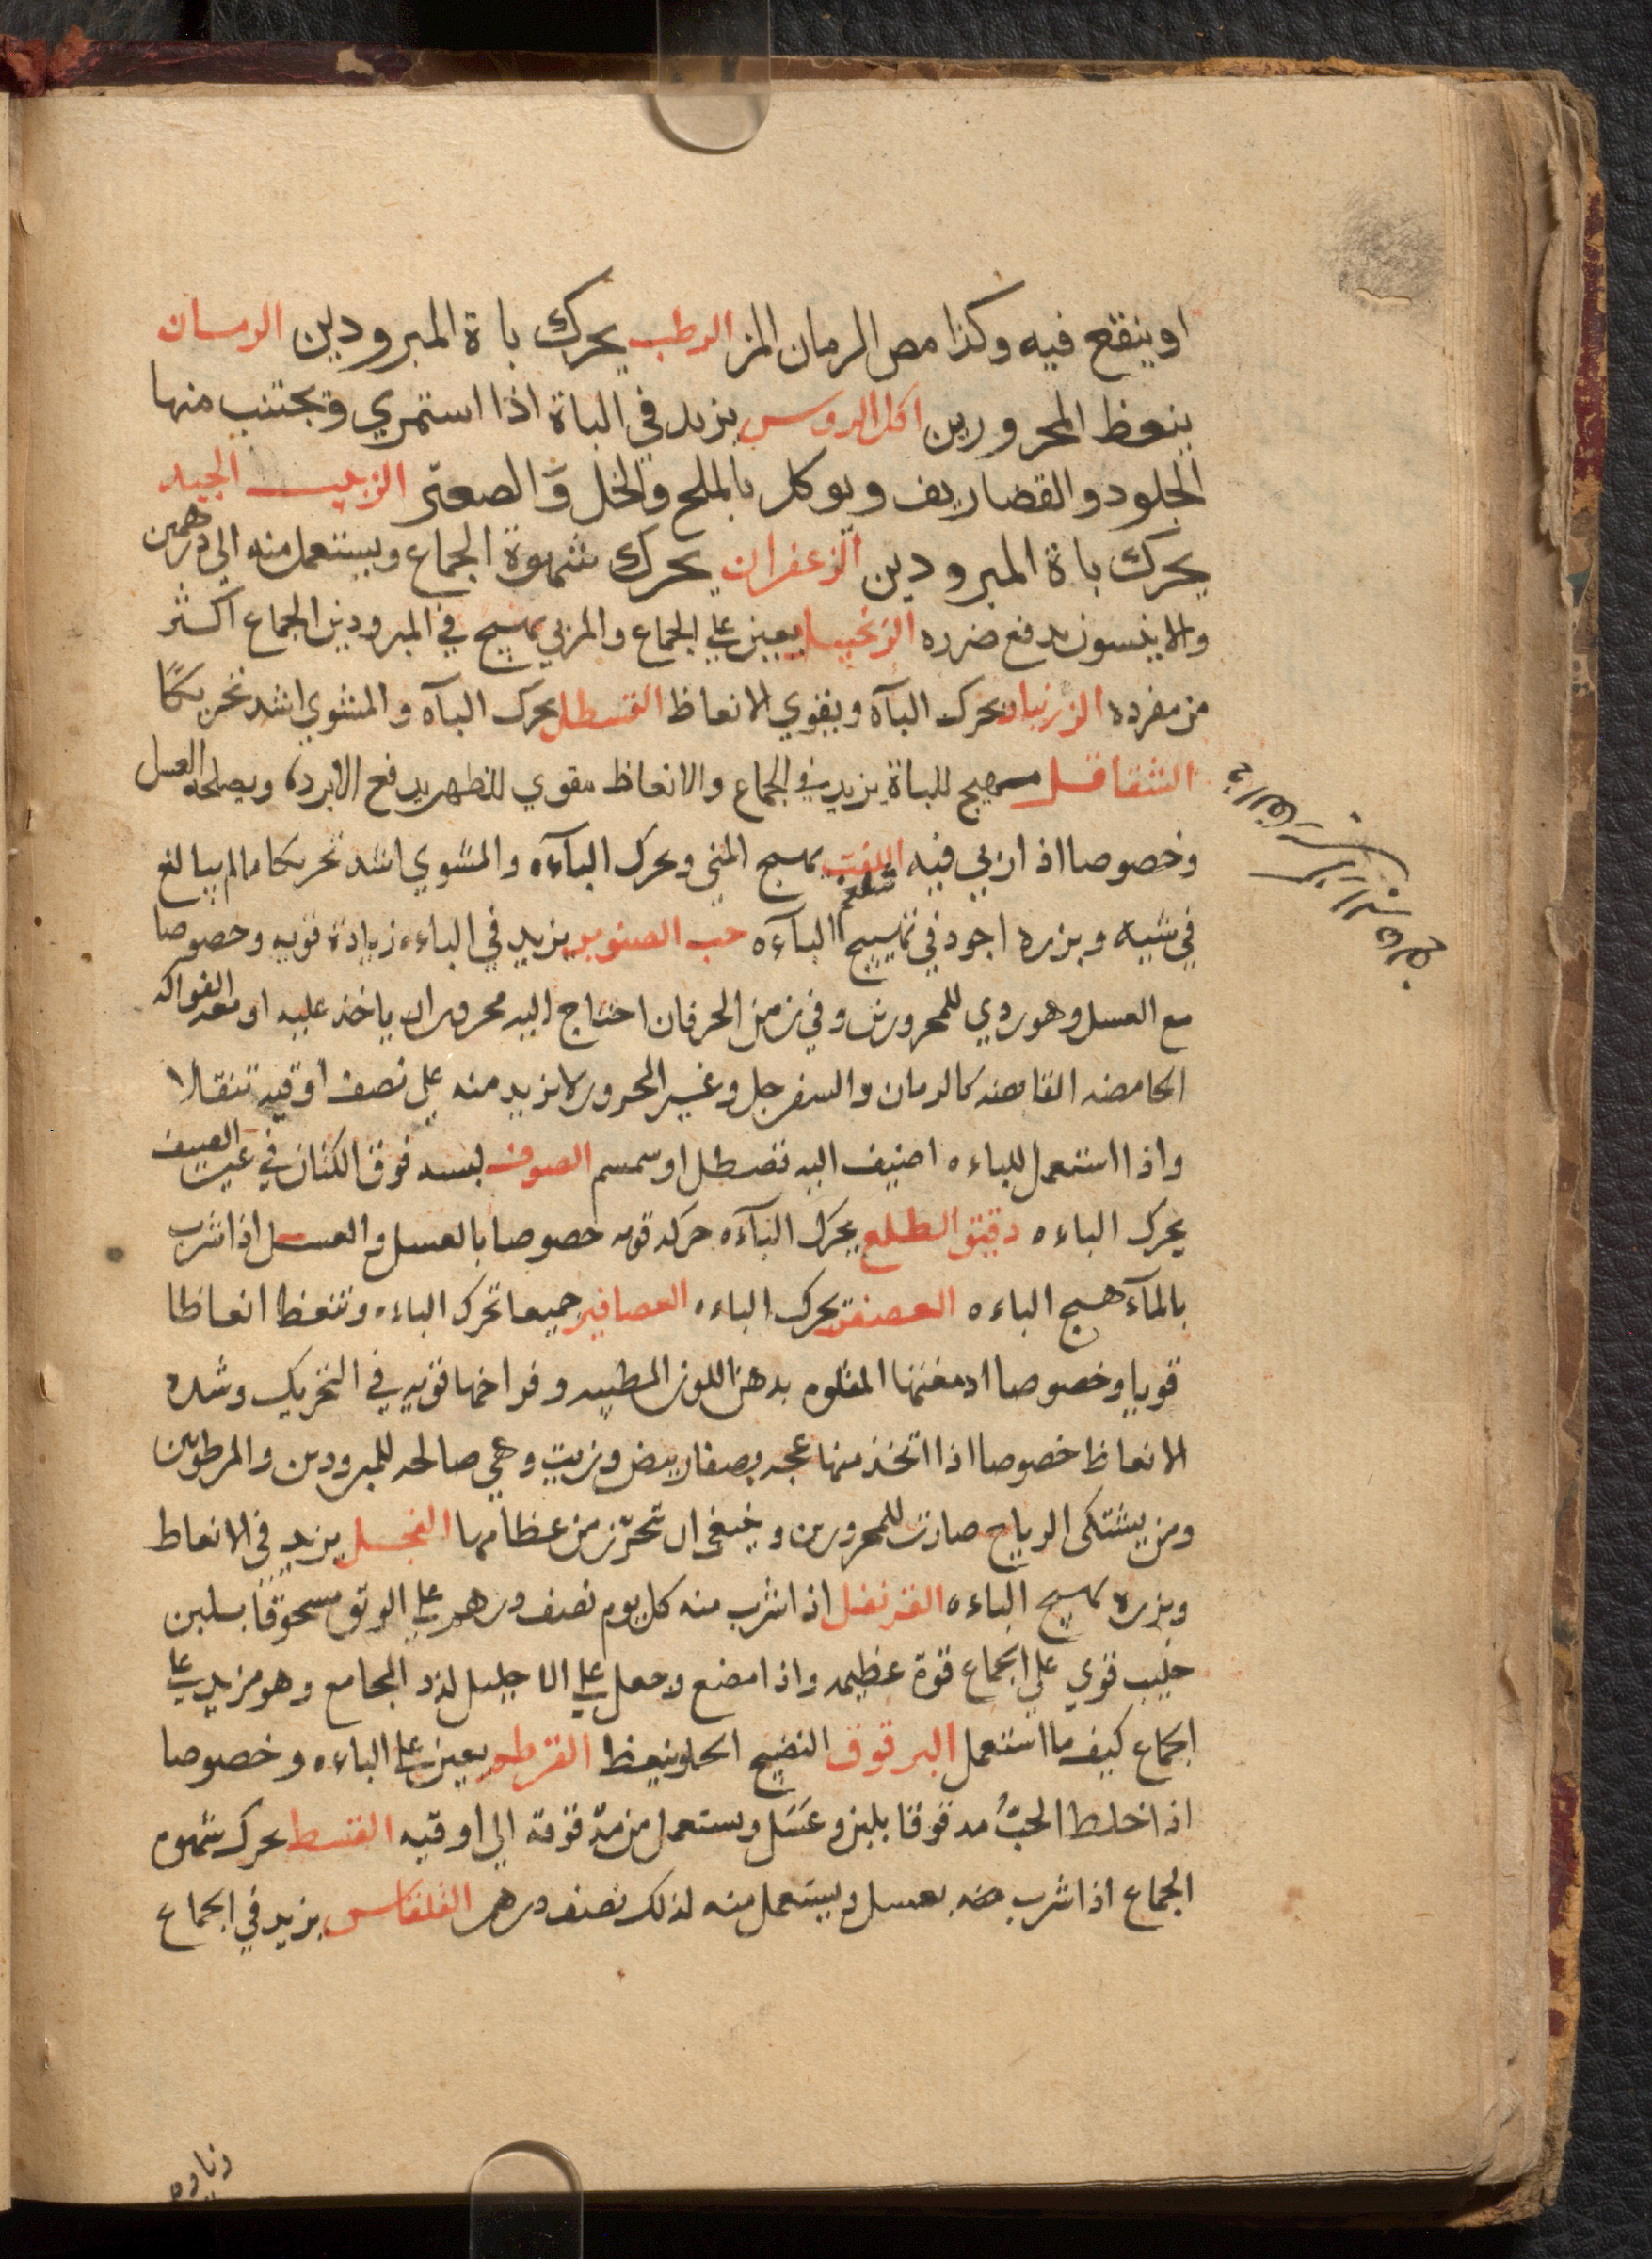 او ينقع فيه وكذا مص الرمان المز الرطب يحرك باة المبرودين الرمان
ينعظ المحرورين اكل الروس يزيد في الباة اذا استمري وتجتنب منها
الجلود والقضاريف ويوكل بالملح والخل والصعتر الزبيب الجيد
يحرك باة المبرودين الزعفران يحرك شهوة الجماع ويستعمل منه الي درهمين
والانيسون يدفع ضرره الزنجبيل يعين علي الجماع والمربي يهيج في المبرودين الجماع اكثر
من مفرده الزرنباد يحرك البآه ويقوي الانعاظ القسطل يحرك البآه والمشوي اشد تحريكًا
الشقاقل مهيج للباة يزيد في الجماع والانعاظ مقوي للظهر يدفع الابرده ويصلحه العسل
وخصوصا اذا ربي فيه اللفت يهيج المني ويحرك البآءه والمشوي اشد تحريكا مالم يبالغ
شلغم
في شيه وبزره اجود في تهييج البآءه حب الصنوبر يزيد في الباءه زيادة قويه وخصوصا
مع العسل وهو ردي للمحرورين وفي زمن الحر فان احتاج اليه محرور ان ياخذ عليه او معه الفواكه
الحامضه القابضه كالرمان والسفرجل وغير المحرور لا يزيد منه علي نصف اوقيه تنقلا
واذا استعمل للباءه اضيف اليه قصطل او سمسم الصوف لبسه فوق الكتان في غير الصيف
يحرك الباءه دقيق الطلع يحرك البآءه حركه قويه خصوصا بالعسل والعسل اذا شرب
بالمآء هيج الباءه العصفر يحرك الباءه العصافير جميعا تحرك الباءه وتنعظ انعاظا
قويا وخصوصا ادمغتها المقلوه بدهن اللوز المطيبه وفراخها قويه في التحريك وشده
الانعاظ خصوصا اذا اتخذ منها عجه بصفار بيض وزيت وهي صالحه للمبرودين والمرطوبين
ومن يشتكي الرياح ضارة للمحرورين وينبغي ان تحرّز من عظامها الفجل يزيد في الانعاظ
وبزره يهيج الباءه القرنفل اذا شرب منه كل يوم نصف درهم علي الريق مسحوقًا بلبن
حليب قوي علي الجماع قوة عظيمه واذا مضغ وجعل علي الاحليل لذذ المجامع وهو مزيد علي
الجماع كيف ما استعمل البرقوق النضيج الحلو ينعظ القرطم يعين علي الباءه وخصوصا
اذا خلط الحبُّ مدقوقا بلبن وعَسَل ويستعمل من مدقوقه الي اوقيه القسط يحرك شهوه
الجماع اذا شرب منه بعسل ويستعمل منه لذلك نصف درهم القلقاس يزيد في الجماع
زياده